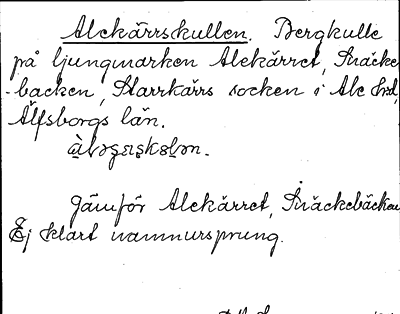 Alekärrskullen. Bergkulle
på ljungmarken Alekärret, Snäcke-
-backen, Starrkärrs socken i Ale hd,
Älfsborgs län.
Jämför Alekärret, Snäckebäcken
Ej klart namnursprung.